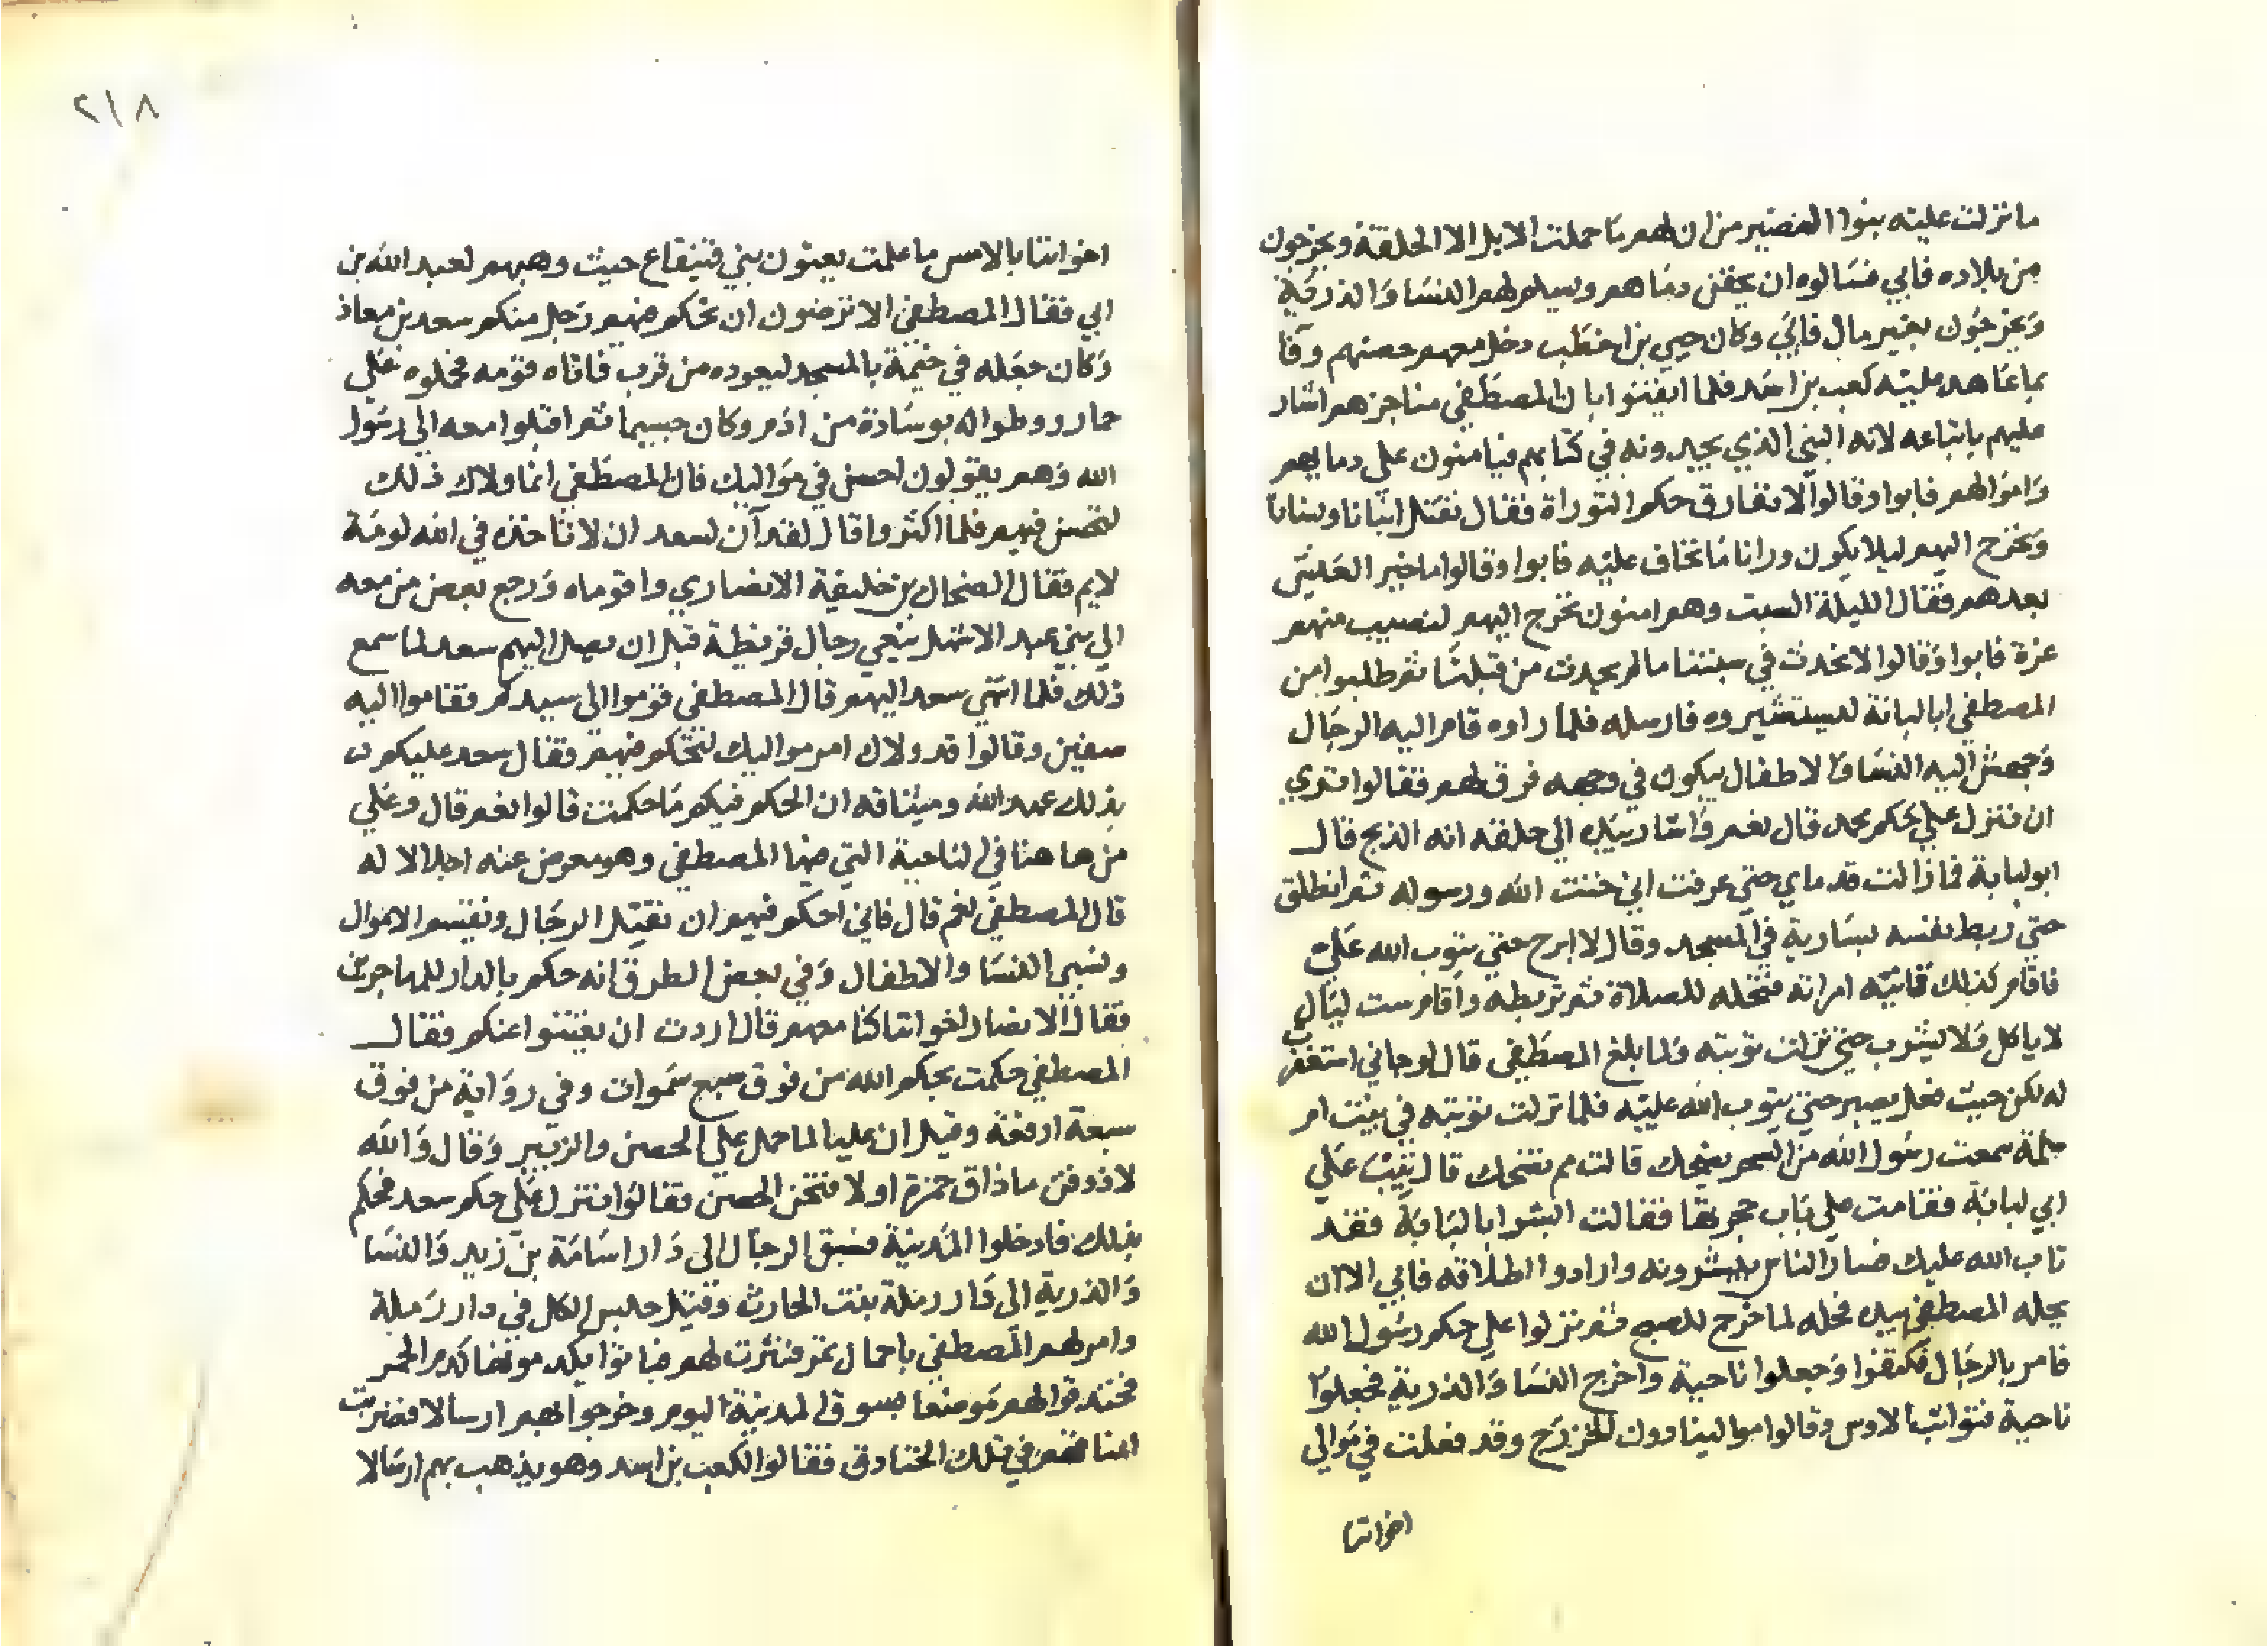 ما نزلت عليه بنوا النضير من ان لهم ما حملت الابل الا الحلقة ويخرجون
من بلاده فابي فسالوه ان يحقن دماهم ويسلم لهم النسا والذرية
ويخرجون بغير مال فابي وكان حيي بن اخطب دخل معهم حصنهم وفا
بما عاهد عليه كعب بن اسد فلما ايقنوا بان المصطفي مناجزهم اشار
عليهم باتباعه لانه النبي الذي يجدونه في كتابهم فيامنون علي دمايهم
واموالهم فابوا وقالوا لا نفارق حكم التوراة فقال نقتل ابنانا ونسانا
ونخرج اليهم ليلا يكون ورانا ما نخاف عليه فابوا وقالوا ما خير العيش
بعدهم فقال الليلة السبت وهم امنون نخرج اليهم لنصيب منهم
غرة فابوا وقالوا لا نحدث في سبتنا ما لم يحدث من قبلنا ثم طلبوا من
المصطفي ابا لبابة ليستشيروه فارسله فلما راوه قام اليه الرجال
وجهش اليه النسا والاطفال يبكون في وجهه فرق لهم فقالوا تري
ان ننزل علي حكم محمد قال نعم واشار بيده الي حلقه انه الذبح قال
ابو لبابة فما زالت قدماي حتي عرفت اني خنت الله ورسوله ثم انطلق
حتي ربط نفسه بسارية في المسجد وقال لا ابرح حتي يتوب الله علي
فاقام كذلك تاتيه امراته فتحله للصلاة ثم تربطه واقام ست ليال
لا ياكل ولا يشرب حتي نزلت توبته ولما بلغ المصطفي قال لو جاني استغفرت
له لكن حيث فعل يصبر حتي يتوب الله عليه فلما نزلت توبته في بيت ام
سلمة سمعت رسول الله من السحر يضحك قالت مم تضحك قال تيب علي
ابي لبابة فقامت علي باب حجرتها فقالت ابشر ابا لبابة فقد
تاب الله عليك فسار الناس يبشرونه وارادوا اطلاقه فابي الا ان
يحله المصطفي بيده فحله لما خرج للصبح ثم نزلوا علي حكم رسول الله
فامر بالرجال فكتفوا وجعلوا ناحية واخرج النسا والذرية فجعلوا
ناحية فتواثب الاوس وقالوا موالينا دون الخزرج وقد فعلت في موالي
اخواننا
٢١٨
اخواننا بالامس ما علمت يعنون بني قينقاع حيث وهبهم لعبد الله بن
ابي فقال المصطفي الا ترضون ان يحكم فيهم رجل منكم سعد بن معاذ
وكان جعله في خيمة بالمسجد ليعوده من قرب فاتاه قومه فحملوه علي
حمار ووطوا له بوسادة من ادم وكان جسيما ثم اقبلوا معه الي رسول
الله وهم يقولون احسن في مواليك فان المصطفي انما ولاك ذلك
لتحسن فيهم فلما اكثروا قال لقد آن لسعد ان لا تاخذه في الله لومة
لايم فقال الضحاك بن خليفة الانصاري وا قوماه ورجع بعض من معه
الي بني عبد الاشهل ينعي رجال قريظة قبل ان يصل اليهم سعد لما سمع
ذلك فلما انتهي سعد اليهم قال المصطفي قوموا الي سيدكم فقاموا اليه
صفين وقالوا قد ولاك امر مواليك لتحكم فيهم فقال سعد عليكم
بذلك عهد الله وميثاقه ان الحكم فيكم ما حكمت قالوا نعم قال وعلي
من هاهنا في الناحية التي فيها المصطفي وهو معرض عنه اجلالا له
قال المصطفي نعم قال فاني احكم فيهم ان نقتل الرجال ونقسم الاموال
ونسبي النسا والاطفال وفي بعض الطرق انه حكم بالدار للمهاجرين
فقال الانصار اخواننا كنا معهم قال اردت ان يغتنوا عنكم فقال
المصطفي حكمت بحكم الله من فوق سبع سموات وفي رواية من فوق
سبعة ارقعة وقيل ان عليا لما حمل علي الحصن والزبير وقال والله
لاذوقن ما ذاق حمزة او لافتحن الحصن فقالوا ننزل علي حكم سعد فحكم
بذلك فادخلوا المدينة فسيق الرجال الي دار اسامة بن زيد والنسا
والذرية الي دار رملة بنت الحارث وقيل حبس الكل في دار رملة
وامر لهم المصطفي باحمال تمر فنثرت لهم فباتوا يكدمونها كدم الحمر
فخندقوا لهم موضعا بسوق المدينة اليوم وخرجوا بهم ارسالا فضربت
اعناقهم في تلك الخنادق فقالوا لكعب بن اسد وهو يذهب بهم ارسالا